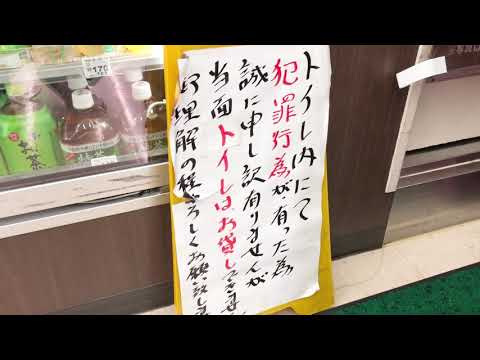 トイレ内にて
犯罪行為が有った為
誠に申し訳有りませんが
当面トイレはお貸しできませ
御理解の程よろしくお願い致しま
170
お茶